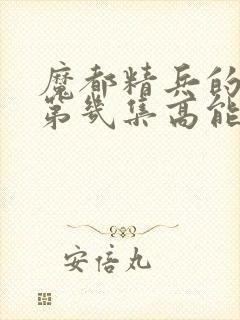 魔都精兵的
第几集高能
安倍丸